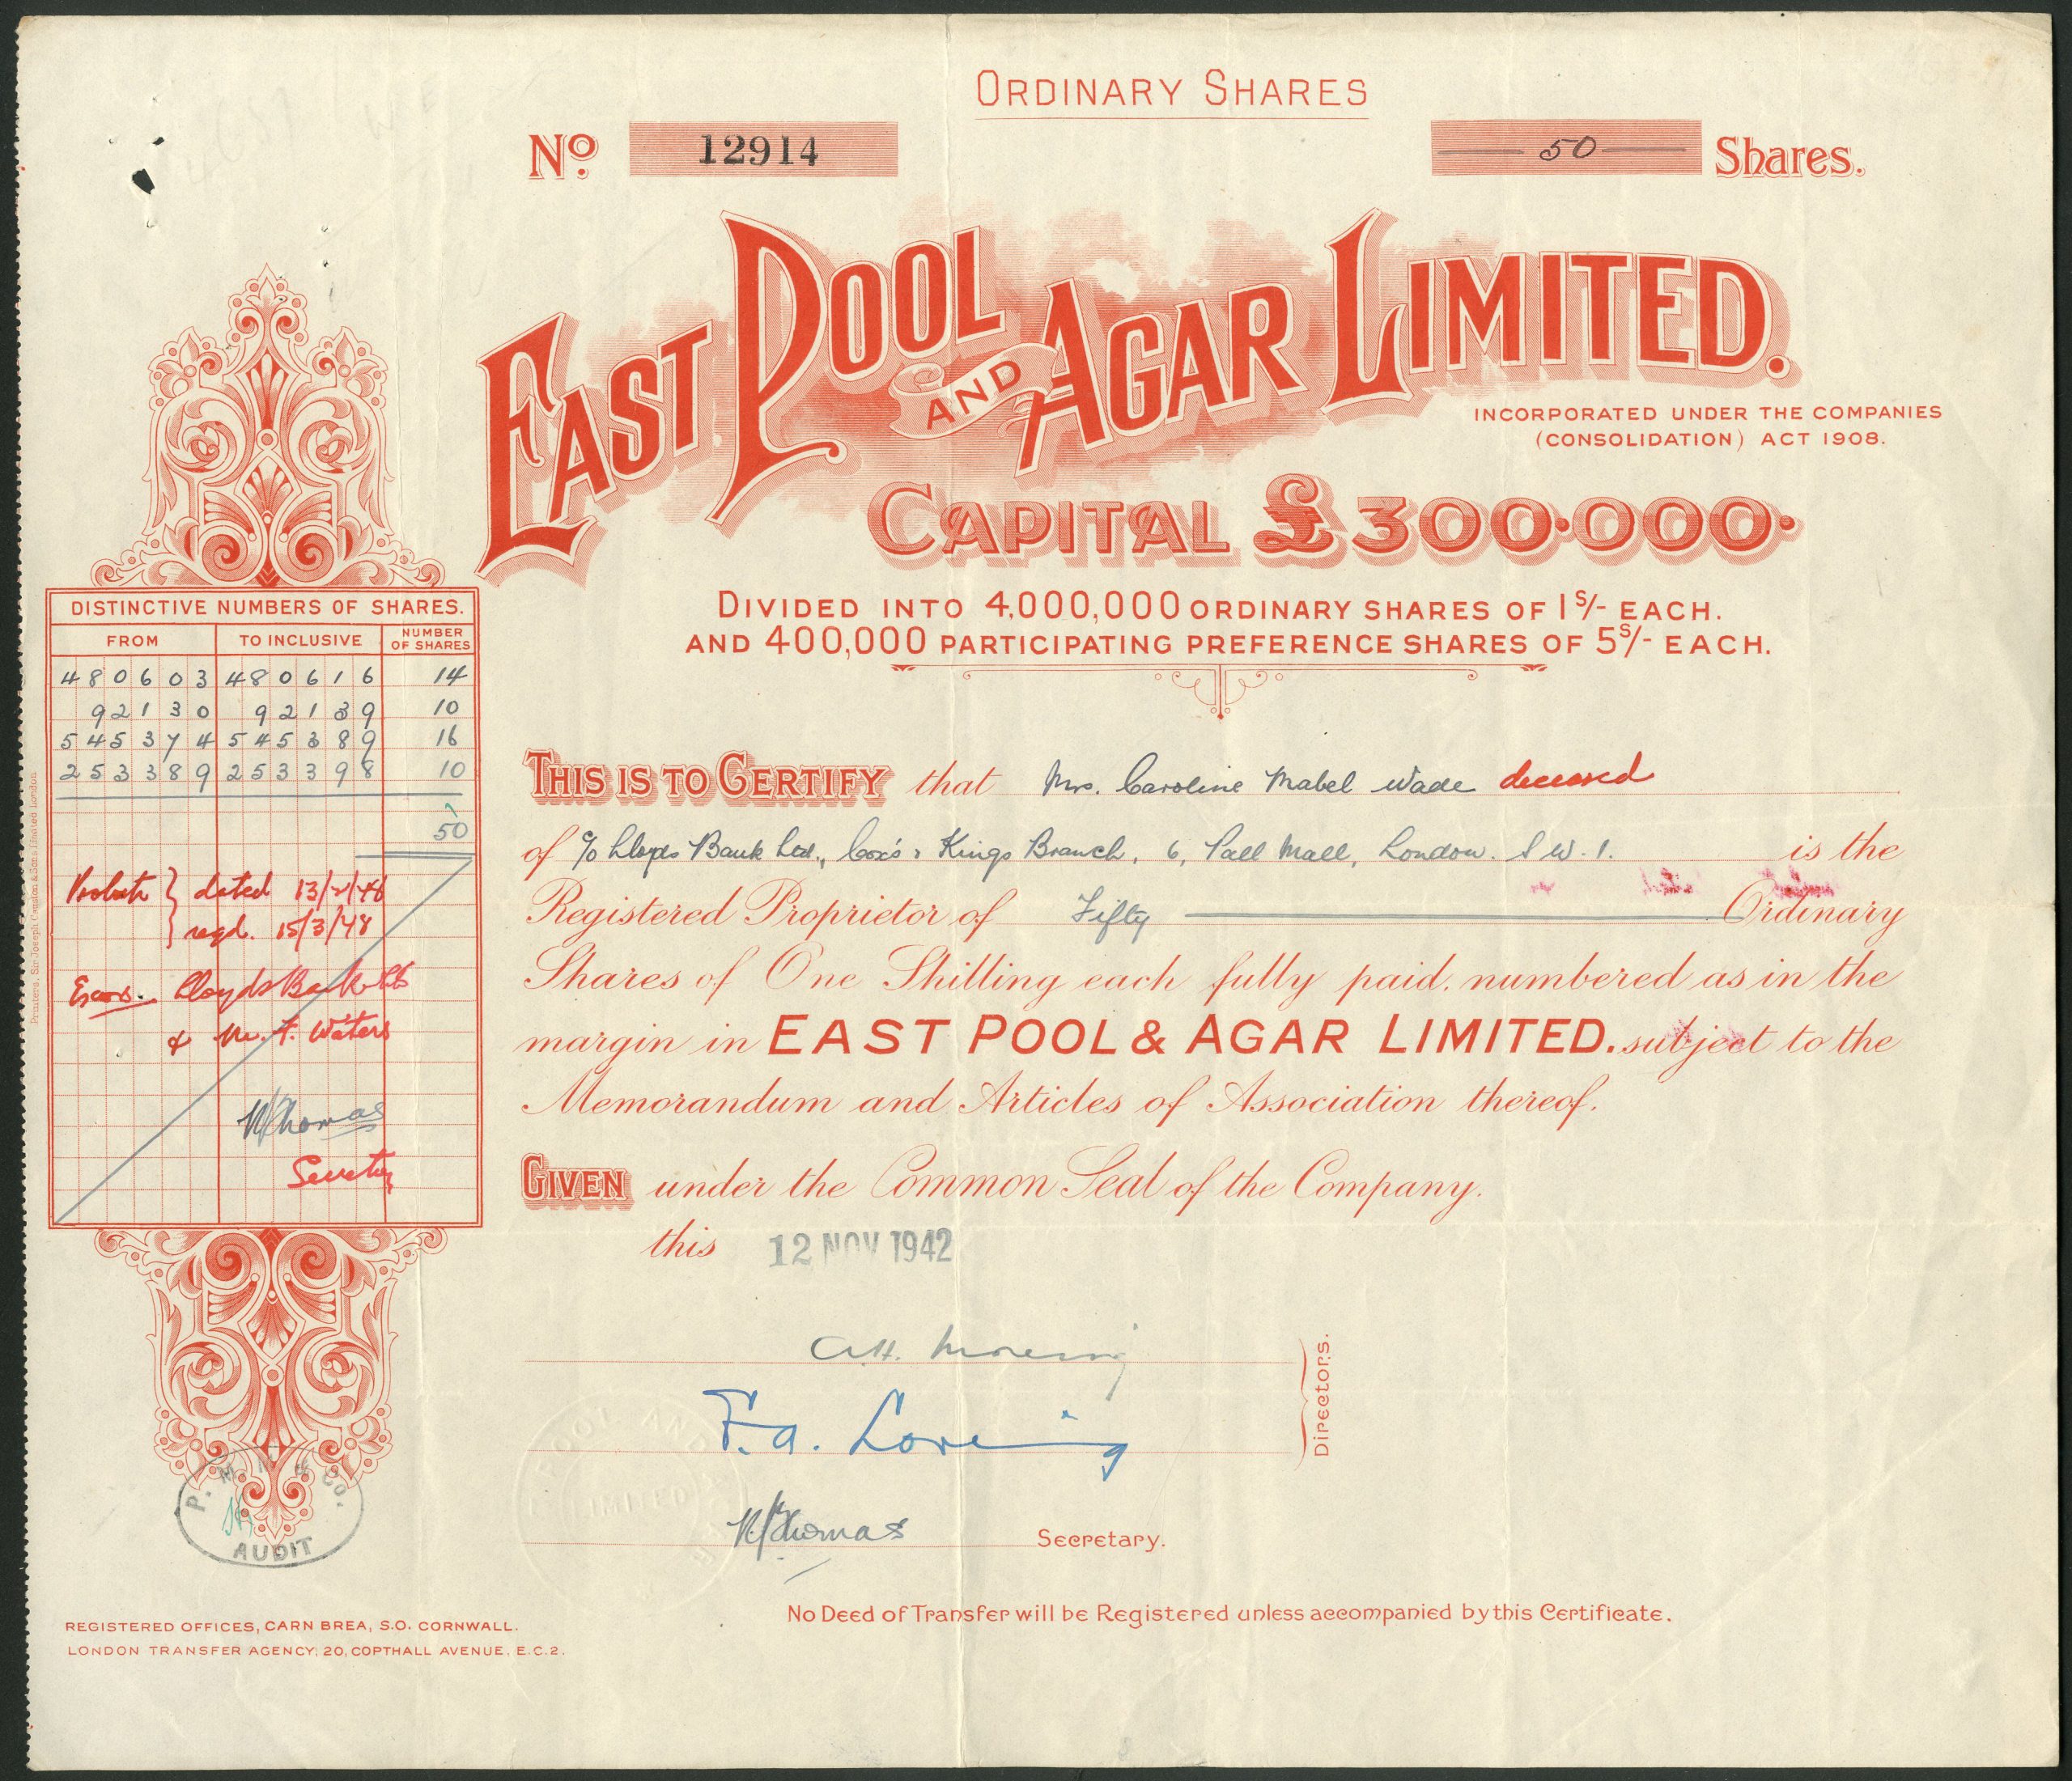 ORDINARY SHARES
No. 12914
50 Shares.
EAST POOL AND AGAR LIMITED.
INCORPORATED UNDER THE COMPANIES
(CONSOLIDATION) ACT 1908.
CAPITAL £300·000·
DIVIDED INTO 4,000,000 ORDINARY SHARES OF 1S/- EACH.
AND 400,000 PARTICIPATING PREFERENCE SHARES OF 5S/- EACH.
DISTINCTIVE NUMBERS OF SHARES.
FROM TO INCLUSIVE NUMBER OF SHARES
480603 480616 14
92130 92139 10
545374 545389 16
253389 253398 10
50
Probate } dated 13/2/48
} regd. 15/3/48
Exors. Lloyds Bank Ltd
& W. F. Waters
W Thomas
Secretary
Printers, Sir Joseph Causton & Sons Limited London
THIS IS TO CERTIFY that Mrs. Caroline Mabel Wade deceased
of c/o Lloyds Bank Ltd., Cox's & Kings Branch, 6, Pall Mall, London. S.W.1. is the
Registered Proprietor of Fifty Ordinary
Shares of One Shilling each fully paid, numbered as in the
margin in EAST POOL & AGAR LIMITED. subject to the
Memorandum and Articles of Association thereof.
GIVEN under the Common Seal of the Company.
this 12 NOV 1942
A.H. Moreing
F.A. Loring
Directors.
W Thomas Secretary.
POOL AND
LIMITED
P. M. & Co.
AUDIT
No Deed of Transfer will be Registered unless accompanied by this Certificate.
REGISTERED OFFICES, CARN BREA, S.O. CORNWALL.
LONDON TRANSFER AGENCY, 20, COPTHALL AVENUE, E.C.2.